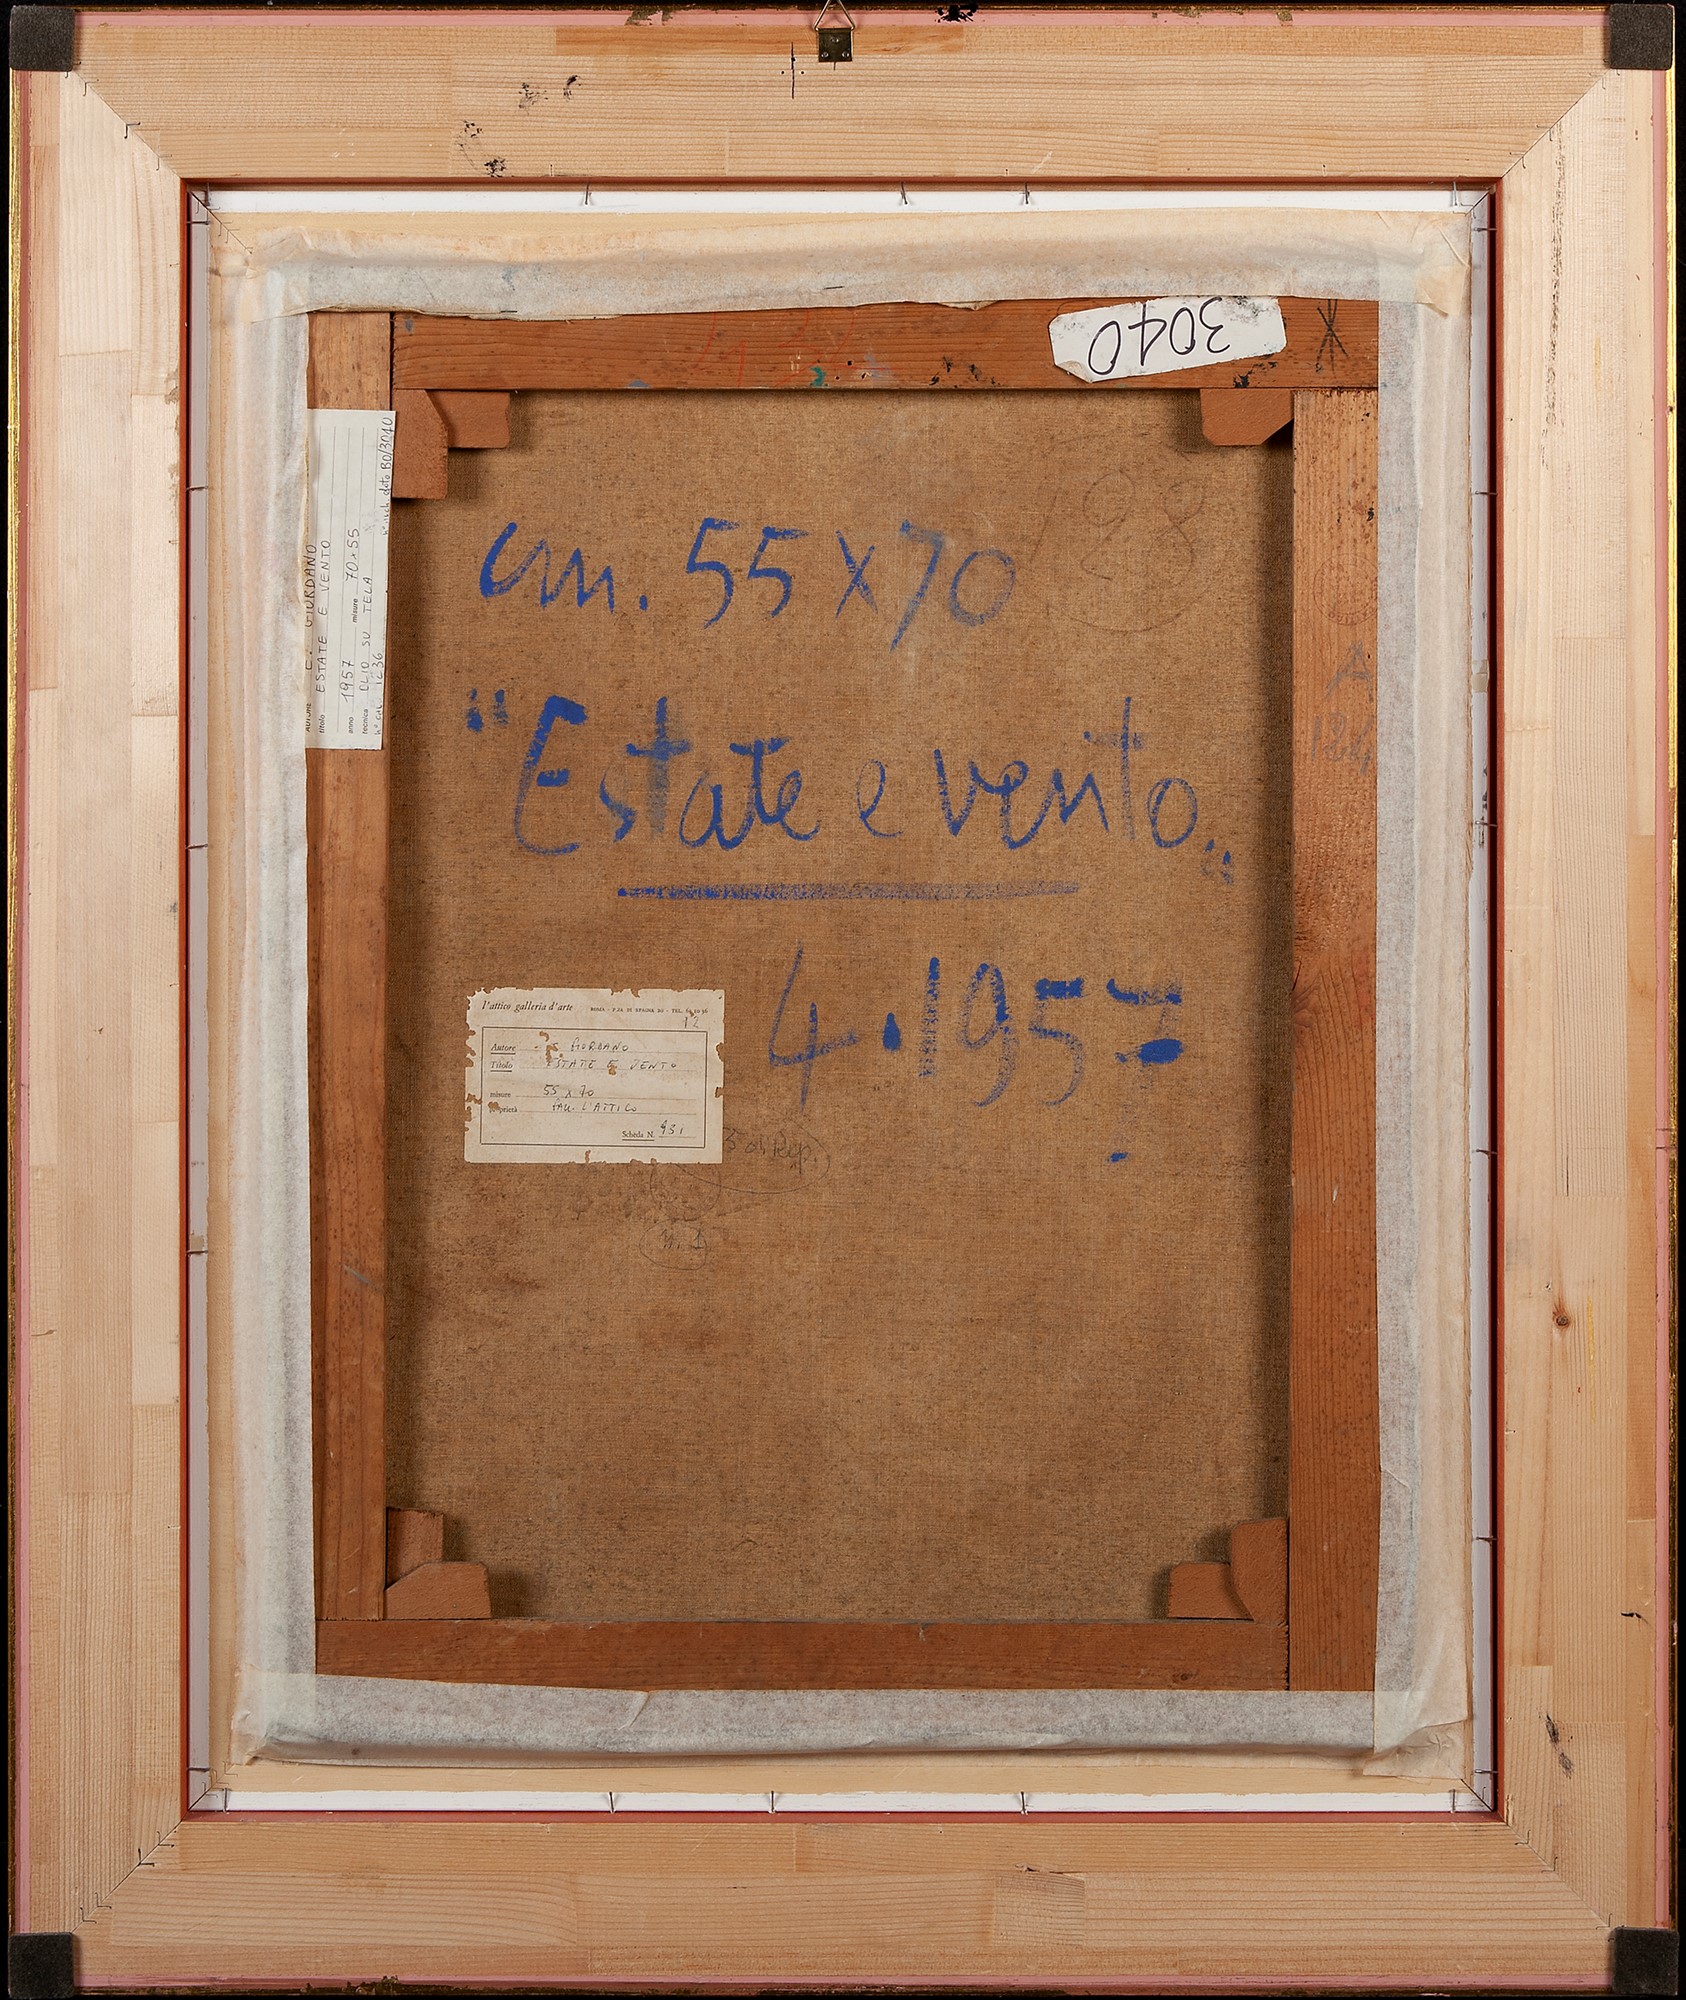 3040
AUTORE E. GIORDANO
titolo ESTATE E VENTO
anno 1957 misure 70×55
tecnica OLIO SU TELA
28
cm. 55 x 70
"Estate e vento"
4.1957
A
l'attico galleria d'arte ROMA - P.ZA DI SPAGNA 20 - TEL.
12
Autore GIORDANO
Titolo ESTATE E VENTO
misure 55 x 70
proprietà GALL. L'ATTICO
Scheda N. 931
N. 1